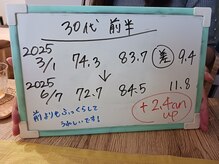 30代 前半
2025 3/1 74.3 83.7 差 9.4
↓
2025 6/7 72.7 84.5 11.8
前よりもふっくらして
うれしいです!
+2.4cm up